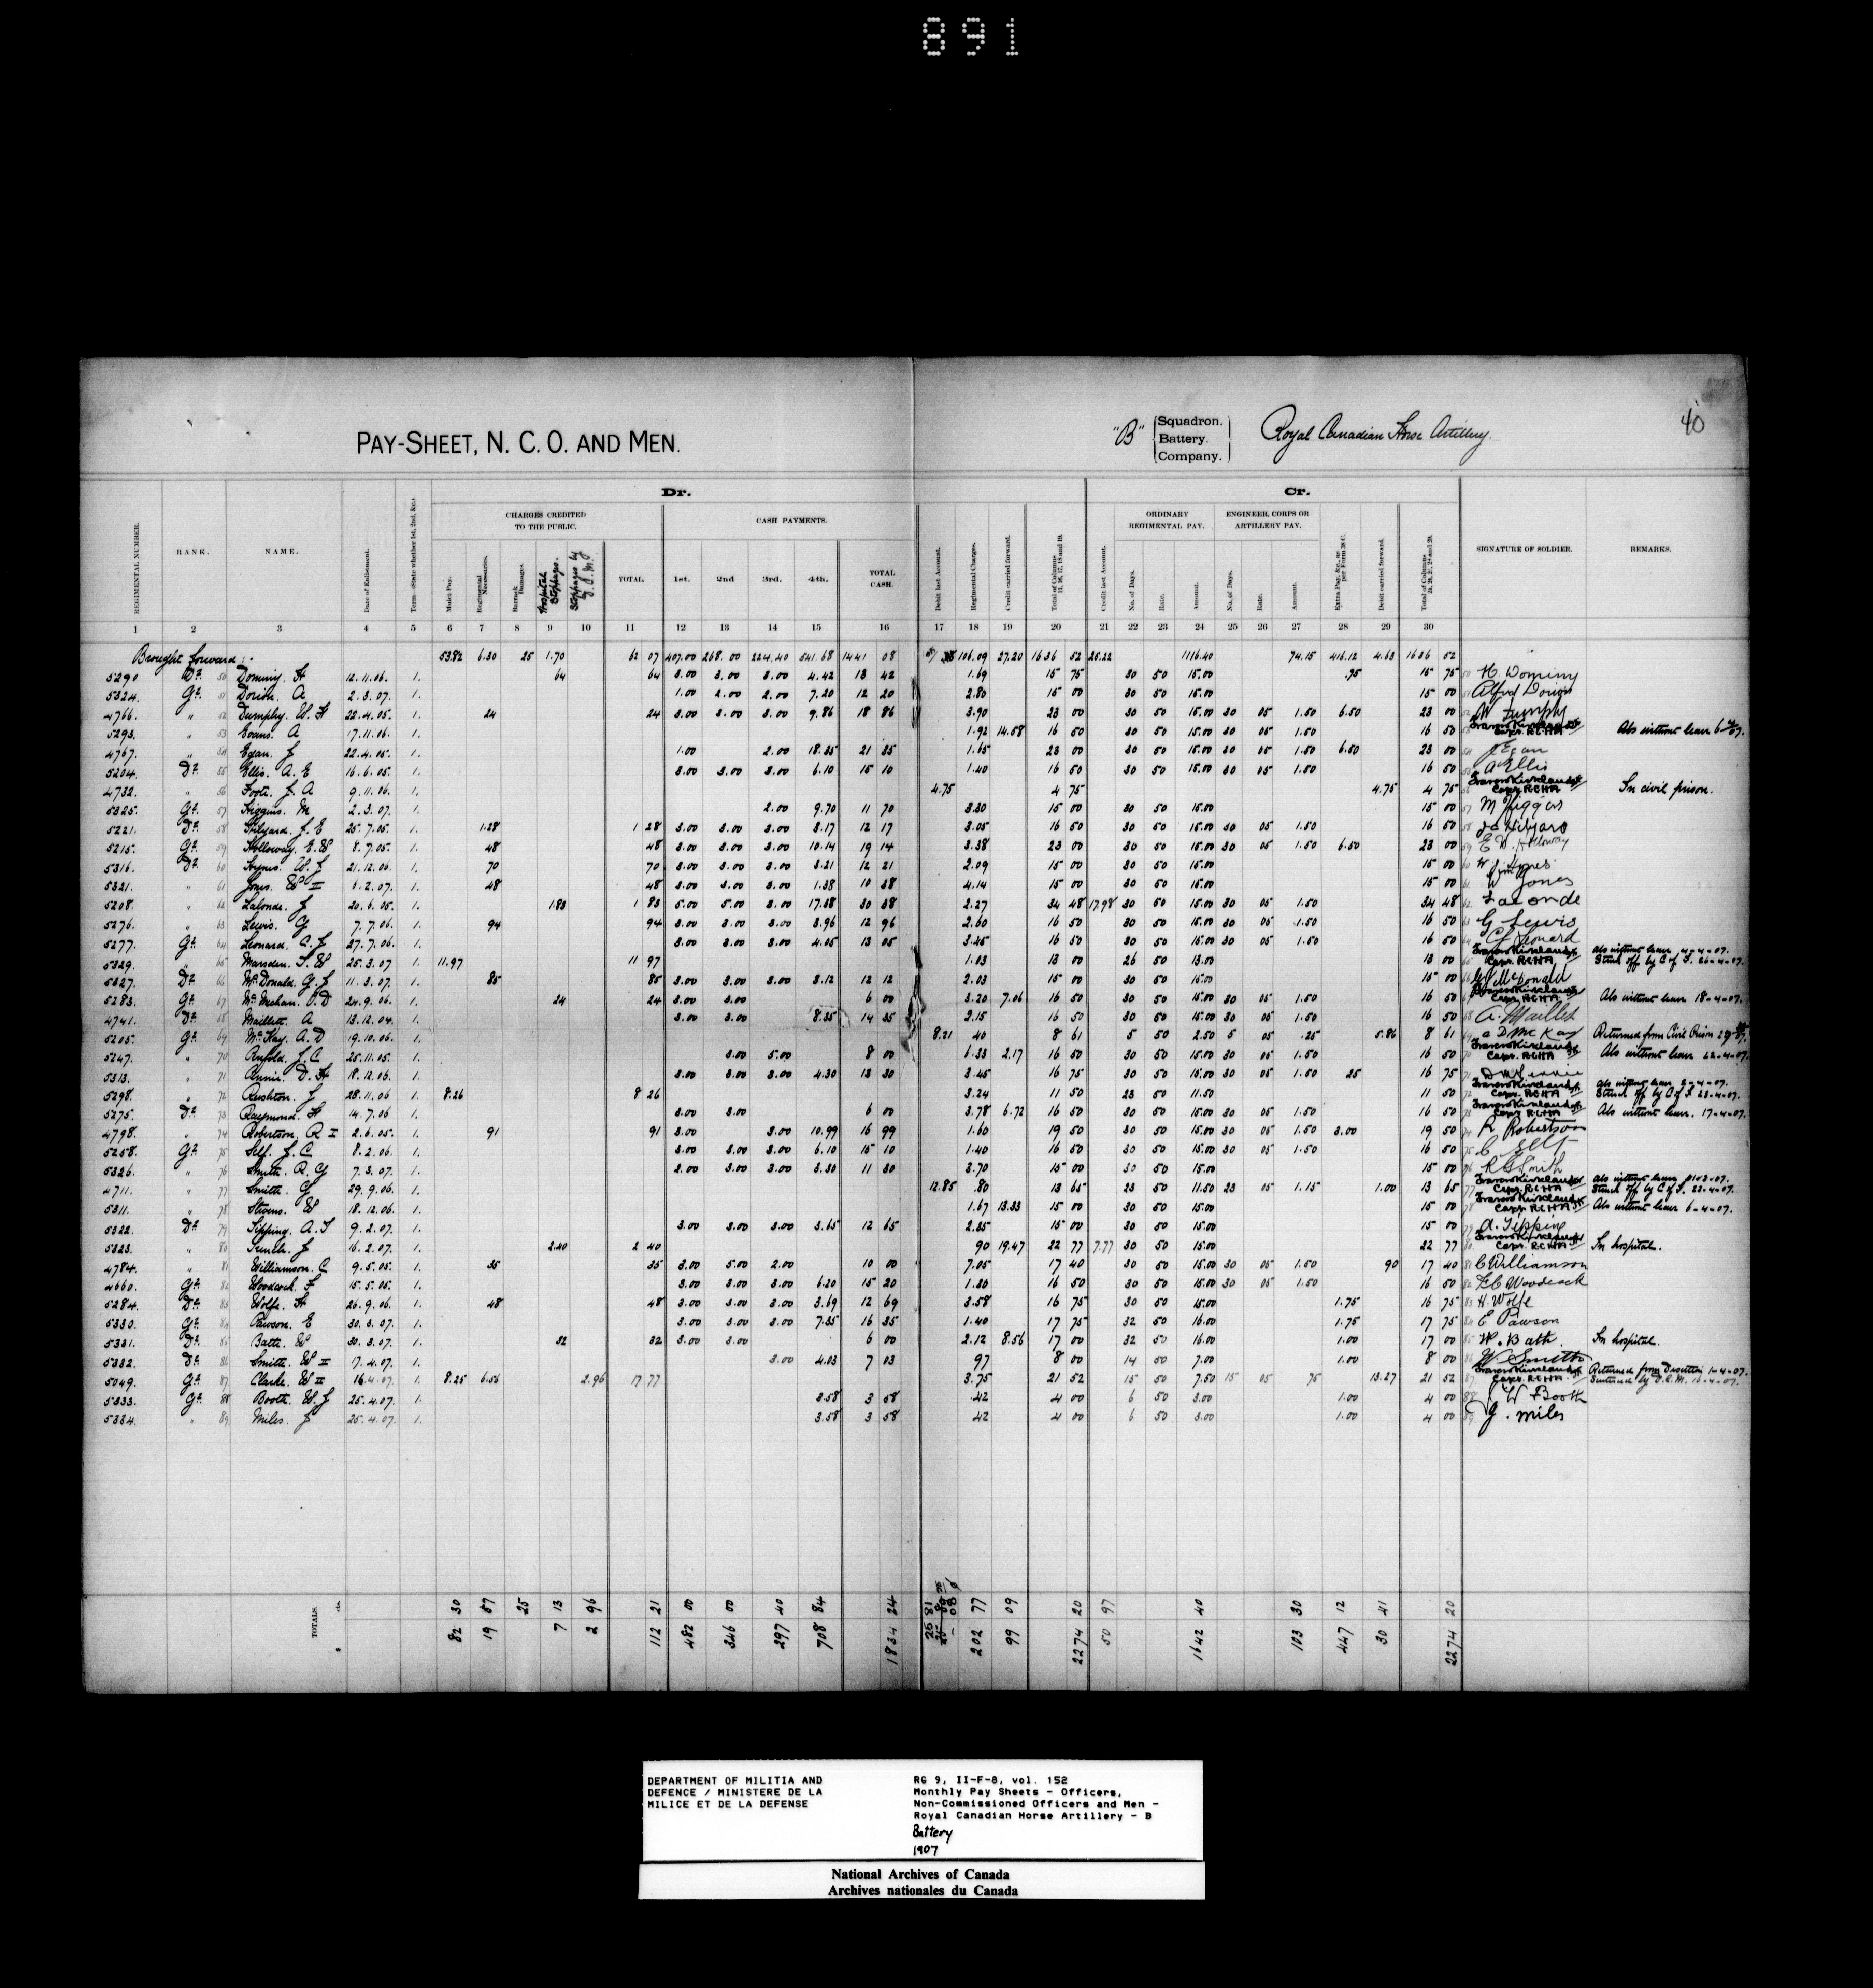 891
40
PAY-SHEET, N. C. O. AND MEN.
"B" Squadron. Battery. Company. Royal Canadian Horse Artillery.
Dr. Cr.
CHARGES CREDITED TO THE PUBLIC. CASH PAYMENTS. ORDINARY REGIMENTAL PAY. ENGINEER CORPS OR ARTILLERY PAY.
REGIMENTAL NUMBER. RANK. NAME. Date of Enlistment. Term—State whether 1st, 2nd, &c. Mulct Pay. Regimental Necessaries. Barrack Damages. Hospital Stoppages. Stoppages by TOTAL. 1st. 2nd 3rd. 4th. TOTAL CASH. Debit last Account. Regimental Charges. Credit carried forward. Total of Columns 11, 16, 17, 18 and 19. Credit last Account. No. of Days. Rate. Amount. No. of Days. Rate. Amount. Extra Pay, &c., as per Form 28 C. Debit carried forward. Total of Columns SIGNATURE OF SOLDIER. REMARKS.
1 2 3 4 5 6 7 8 9 10 11 12 13 14 15 16 17 18 19 20 21 22 23 24 25 26 27 28 29 30
Brought forward :- 53.82 6.30 25 1.70 62 07 407.00 268.00 224.40 541.68 1441 08 106.09 27.20 1636 52 25.22 1116.40 74.15 416.12 4.63 1636 52
5290 Dr. 50 Dominy. H 12.11.06. 1. 64 64 3.00 3.00 3.00 4.42 13 42 1.69 15 75 30 50 15.00 .75 15 75 H. Dominy
5324. Gr. 51 Dorion. A 2.3.07. 1. 1.00 2.00 2.00 7.20 12 20 2.80 15 00 30 50 15.00 15 00 Alfred Dorion
4766. " 52 Dumphy. W. H 22.4.05. 1. 24 24 3.00 3.00 3.00 9.86 18 86 3.90 23 00 30 50 15.00 30 05 1.50 6.50 23 00
5293. " 53 Evans. A 17.11.06. 1. 1.92 14.58 16 50 30 50 15.00 30 05 1.50 16 50 Capt. RCHA Abs without leave
4767. " 54 Egan. J 22.4.05. 1. 1.00 2.00 18.35 21 35 1.65 23 00 30 50 15.00 30 05 1.50 6.50 23 00 J Egan
5204. Dr. 55 Ellis. A. E 16.6.05. 1. 3.00 3.00 3.00 6.10 15 10 1.40 16 50 30 50 15.00 30 05 1.50 16 50 A Ellis
4732. " 56 Foote. J. A 9.11.06. 1. 4.75 4 75 4.75 4 75 Capt. RCHA In civil prison.
5325. Gr. 57 Higgins. M 2.3.07. 1. 2.00 9.70 11 70 3.30 15 00 30 50 15.00 15 00 M Higgas
5221. Dr. 58 Hilyard. J. E 25.7.05. 1. 1.28 1 28 3.00 3.00 3.00 3.17 12 17 3.05 16 50 30 50 15.00 30 05 1.50 16 50
5215. Gr. 59 Holloway. E. W 8.7.05. 1. 48 48 3.00 3.00 3.00 10.14 19 14 3.38 23 00 30 50 15.00 30 05 1.50 6.50 23 00 E W. Holloway
5316. Dr. 60 Hymes. W. J 21.12.06. 1. 70 70 3.00 3.00 3.00 3.21 12 21 2.09 15 00 30 50 15.00 15 00
5321. " 61 Jones. W II 6.2.07. 1. 48 48 3.00 3.00 3.00 1.38 10 38 4.14 15 00 30 50 15.00 15 00 Wm Jones
5208. " 62 Lalonde. J 20.6.05. 1. 1.83 1 83 5.00 5.00 3.00 17.38 30 38 2.27 34 48 17.98 30 50 15.00 30 05 1.50 34 48 Lalonde
5276. " 63 Lewis. G 7.7.06. 1. 94 94 3.00 3.00 3.00 3.96 12 96 2.60 16 50 30 50 15.00 30 05 1.50 16 50 G Lewis
5277. Gr. 64 Leonard. C. J 27.7.06. 1. 3.00 3.00 3.00 4.05 13 05 3.45 16 50 30 50 15.00 30 05 1.50 16 50 CJ Leonard
5329. " 65 Marsden. S. W 25.3.07 1. 11.97 11 97 1.03 13 00 26 50 13.00 13 00 Capt. RCHA Abs without leave 4-4-07. Struck off by C of I. 26-4-07.
5327. Dr. 66 McDonald. G. J 11.3.07. 1. 85 85 3.00 3.00 3.00 3.12 12 12 2.03 15 00 30 50 15.00 15 00 McDonald
5283. Gr. 67 McMeehan. P. D 24.9.06. 1. 24 24 3.00 3.00 6 00 3.20 7.06 16 50 30 50 15.00 30 05 1.50 16 50 Capt. RCHA Abs without leave 18-4-07.
4741. Dr. 68 Maillett. A 13.12.04. 1. 3.00 3.00 8.35 14 35 2.15 16 50 30 50 15.00 30 05 1.50 16 50 A. Maillet
5205. Gr. 69 McKay. A. D 19.10.06. 1. 8.21 40 8 61 5 50 2.50 5 05 .25 5.86 8 61 A D McKay Returned from Civil Prison
5247. " 70 Penfold. J. C 25.11.05. 1. 3.00 5.00 8 00 6.33 2.17 16 50 30 50 15.00 30 05 1.50 16 50 Capt. RCHA Abs without leave 22-4-07.
5313. " 71 Rennie. D. H 18.12.06. 1. 3.00 3.00 3.00 4.30 13 30 3.45 16 75 30 50 15.00 30 05 1.50 25 16 75
5298. " 72 Rushton. J 28.11.06 1. 8.26 8 26 3.24 11 50 23 50 11.50 11 50 Capt. RCHA Abs without leave 9-4-07. Struck off by C of I. 23-4-07.
5275. Dr. 73 Raymond. H 14.7.06 1. 3.00 3.00 6 00 3.78 6.72 16 50 30 50 15.00 30 05 1.50 16 50 Capt. RCHA Abs without leave. 17-4-07.
4798. " 74 Robertson. R I 2.6.05. 1. 91 91 3.00 3.00 10.99 16 99 1.60 19 50 30 50 15.00 30 05 1.50 3.00 19 50 R Robertson
5258. Gr. 75 Self. J. C 8.2.06. 1. 3.00 3.00 3.00 6.10 15 10 1.40 16 50 30 50 15.00 30 05 1.50 16 50 C Self
5326. " 76 Smith. R. G 7.3.07. 1. 2.00 3.00 3.00 3.30 11 30 3.70 15 00 30 50 15.00 15 00 R G Smith
4711. " 77 Smith. G 29.9.06. 1. 12.85 .80 13 65 23 50 11.50 23 05 1.15 1.00 13 65 Capt. RCHA Abs without leave Struck off by C of I. 22-4-07.
5311. " 78 Stevens. W 18.12.06. 1. 1.67 13.33 15 00 30 50 15.00 15 00 Capt. RCHA Abs without leave 6-4-07.
5322. Dr. 79 Tipping. A. T 9.2.07. 1. 3.00 3.00 3.00 3.65 12 65 2.35 15 00 30 50 15.00 15 00 A. Tipping
5323. " 80 Trench. J 16.2.07. 1. 2.40 2 40 90 19.47 22 77 7.77 30 50 15.00 22 77 Capt. RCHA In hospital.
4784. " 81 Williamson. C 9.5.05. 1. 35 35 3.00 5.00 2.00 10 00 7.05 17 40 30 50 15.00 30 05 1.50 90 17 40 C Williamson
4660. Gr. 82 Woodcock. F 15.5.05. 1. 3.00 3.00 3.00 6.20 15 20 1.30 16 50 30 50 15.00 30 05 1.50 16 50 F C Woodcock
5284. Dr. 83 Wolfe. H 26.9.06. 1. 48 48 3.00 3.00 3.00 3.69 12 69 3.58 16 75 30 50 15.00 1.75 16 75 H. Wolfe
5330. Gr. 84 Pawson. E 30.3.07. 1. 3.00 3.00 3.00 7.35 16 35 1.40 17 75 32 50 16.00 1.75 17 75 E Pawson
5331. Dr. 85 Bath. W 30.3.07. 1. 32 32 3.00 3.00 6 00 2.12 8.56 17 00 32 50 16.00 1.00 17 00 W. Bath In hospital.
5332. Dr. 86 Smith. W II 17.4.07. 1. 3.00 4.03 7 03 97 8 00 14 50 7.00 1.00 8 00 W Smith
5049. Gr. 87 Clarke. W II 16.4.07. 1. 8.25 6.56 2.96 17 77 3.75 21 52 15 50 7.50 15 05 75 13.27 21 52 Capt. RCHA Returned from Desertion 1-4-07. Sentenced by D.C.M. 16-4-07.
5333. Gr. 88 Booth. W. J 25.4.07. 1. 3.58 3 58 .42 4 00 6 50 3.00 1.00 4 00 W Booth
5334. " 89 Miles. J 25.4.07. 1. 3.58 3 58 42 4 00 6 50 3.00 1.00 4 00 J. Miles
TOTALS. $ cts. 82 30 19 57 25 7 13 2 96 112 21 482 00 346 00 297 40 708 84 1834 24 25 81 202 77 99 09 2274 20 50 97 1642 40 103 30 447 12 30 41 2274 20
DEPARTMENT OF MILITIA AND DEFENCE / MINISTERE DE LA MILICE ET DE LA DEFENSE
RG 9, II-F-8, vol. 152
Monthly Pay Sheets - Officers,
Non-Commissioned Officers and Men -
Royal Canadian Horse Artillery - B
Battery
1907
National Archives of Canada
Archives nationales du Canada